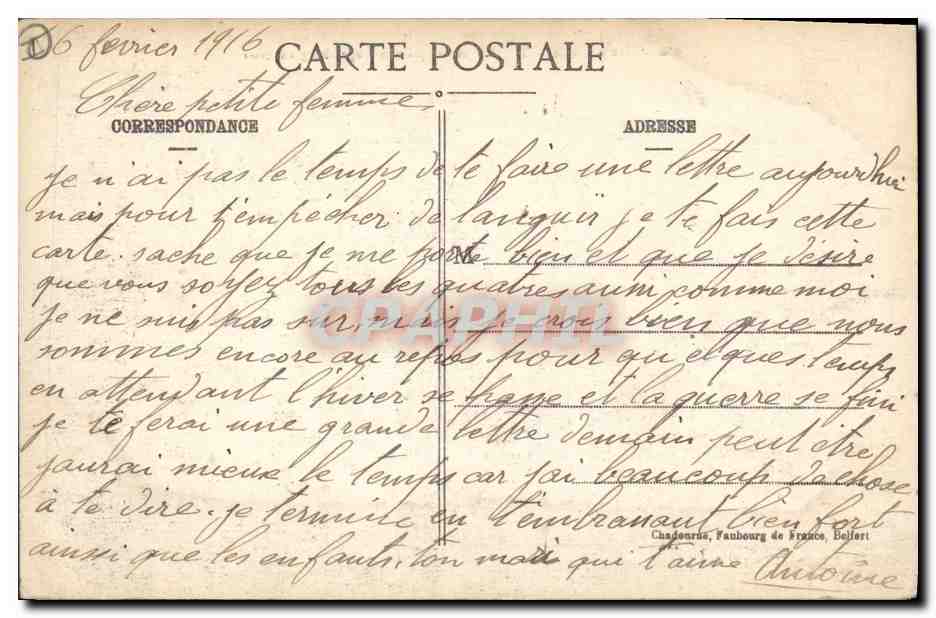 6 fevrier 1916
CARTE POSTALE
Chere petite femme
CORRESPONDANCE
ADRESSE
je n'ai pas le temps de te faire une lettre aujourdhui
mais pour t'empécher de languir je te fais cette
carte. sache que je me porte bien et que je désire
M
que vous soyez tous les quatres aussi comme moi
je ne suis pas sur, mais je crois bien que nous
CPAPHIL
sommes encore au repos pour quelques temps
en attendant l'hiver se passe et la guerre se fini
je te ferai une grande lettre demain peut être
jaurai mieux le temps car jai beaucoup de chose
à te dire. je termine en t'embrassant bien fort
Chadourne, Faubourg de France, Belfort
ainsi que les enfants. ton mari qui t'aime Antoine